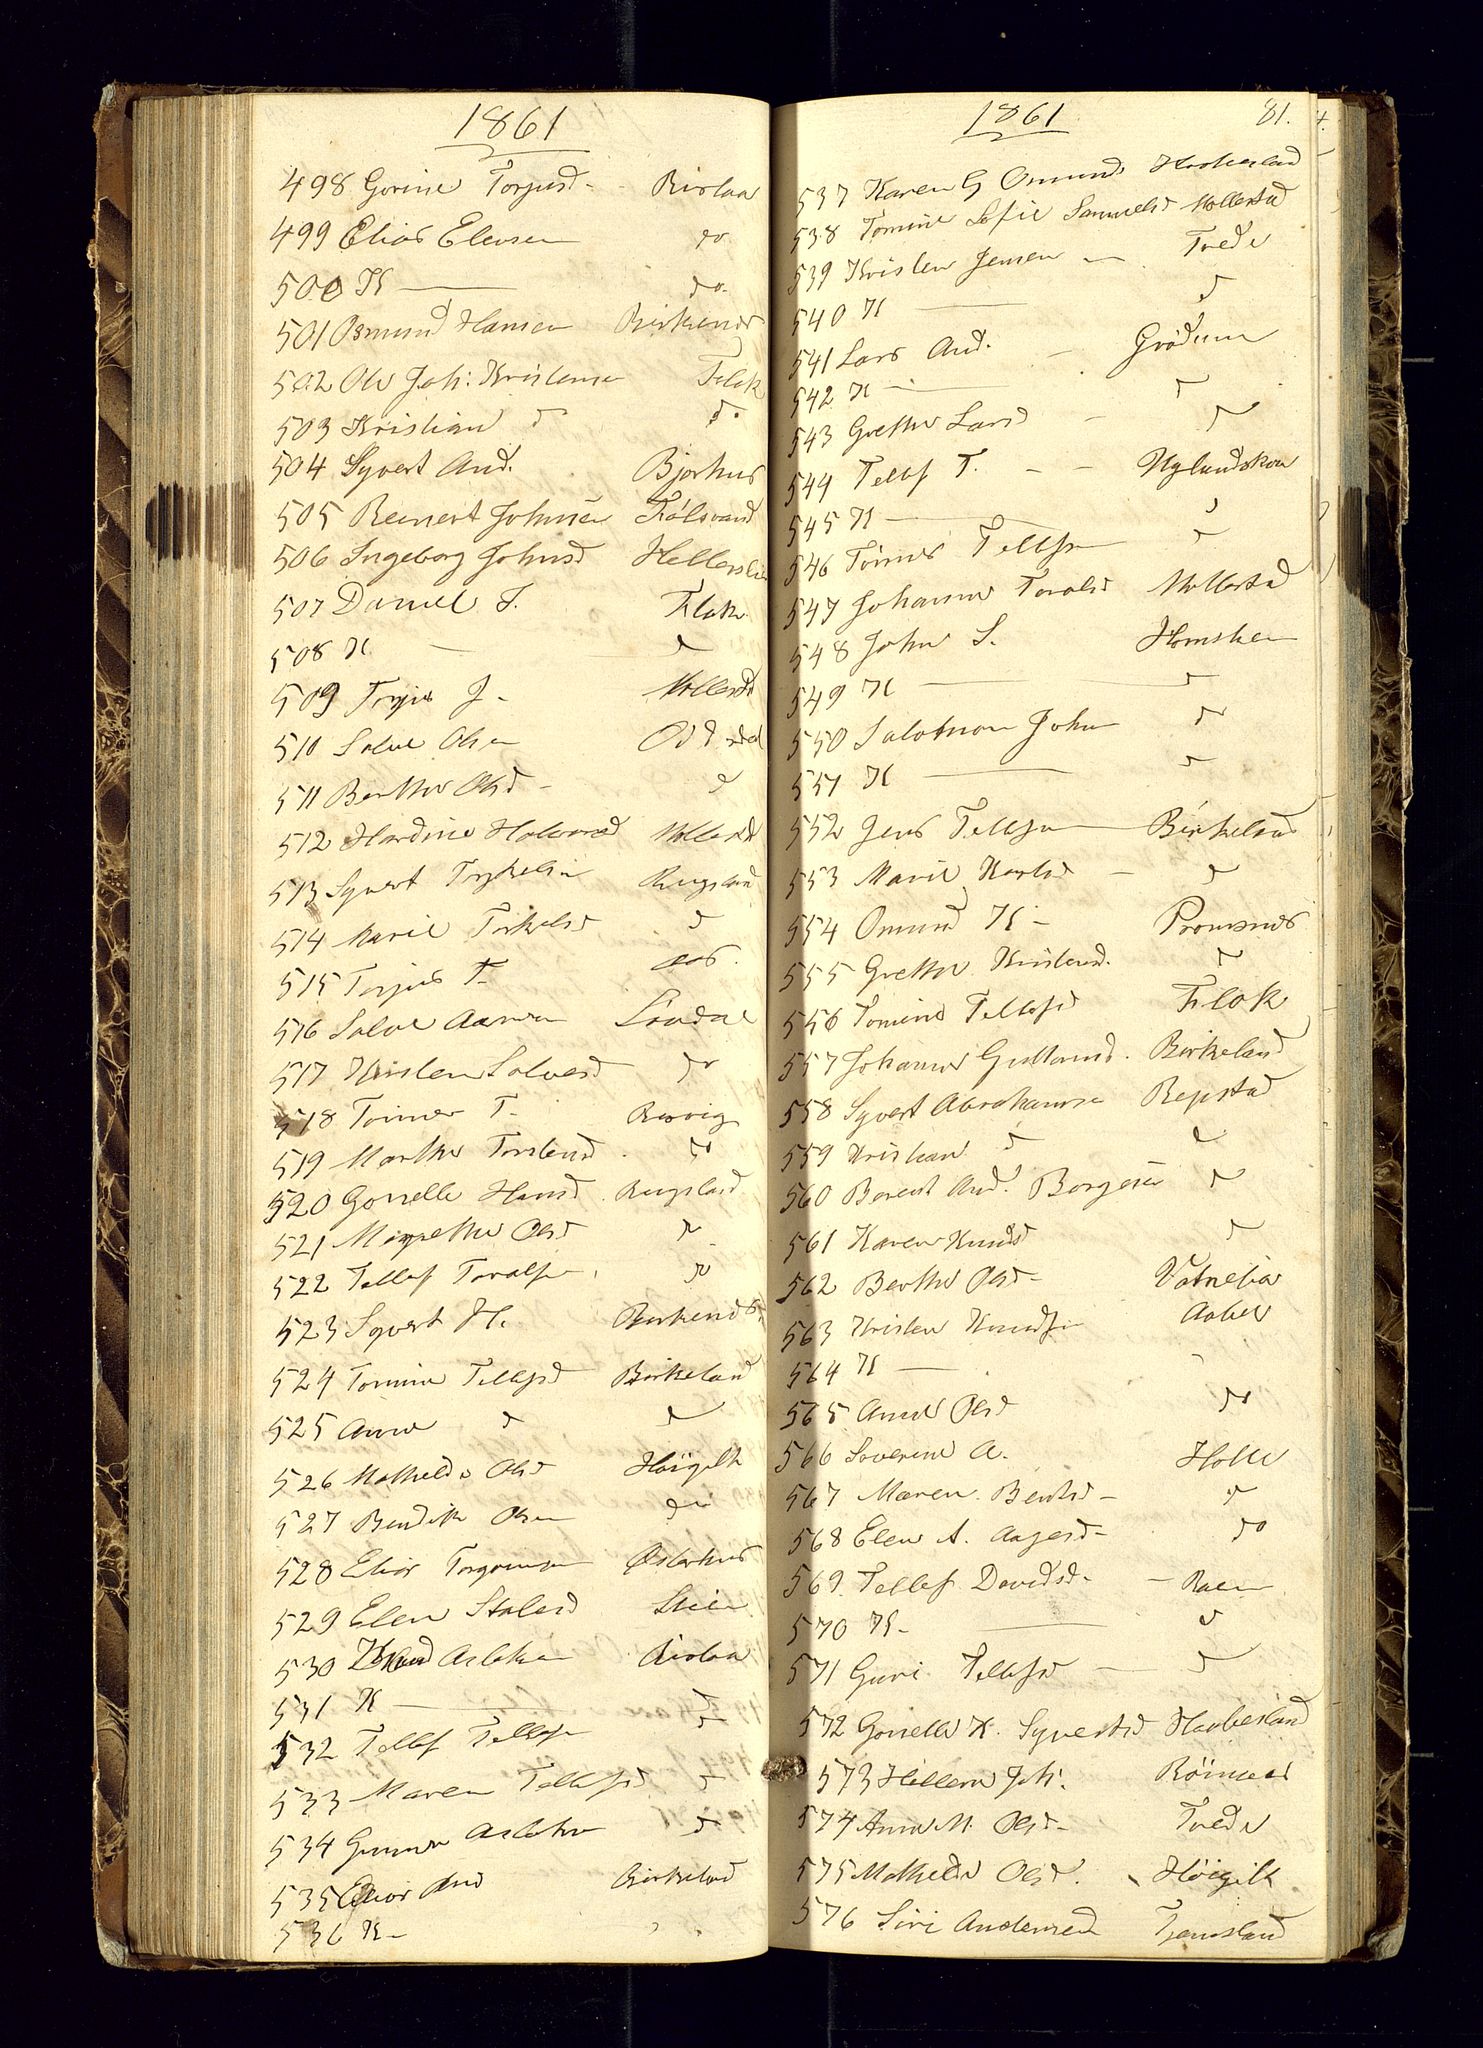 1861
498 Gorine Torjusd - Rislaa
499 Elias Elevsen do
500 K — do.
501 Osmund Hansen Birkenes
502 Ole Joh: Kristense Flak
503 Kristian d d.
504 Syvert And. Bjorkus
505 Reinert Johnsen Kålsvand
506 Ingeborg Johnsd Hellerslia
507 Daniel J. Flak
508 K. — d
509 Torjus J - Mollestd
510 Salve Olsen Oddestøl
511 Berthe Olsd - d
512 Hardine Halvorsd Mollestd
513 Syvert Trykelsen Rugsland
514 Marie Torkelsd d
515 Torjus T. Aas.
516 Salve Aanen Søndal
517 Kristen Salvesd do
518 Tomes T. Røsvig
519 Marthe Torstensd do
520 Gonelle Hansd. Rugsland
521 Margrethe Olsd d
522 Tellef Toralfse. do
523 Syvert H. Birkenes
524 Tomine Tellefsd Birkeland
525 Anne d d
526 Mathilde Olsd Høigilt
527 Bendikt Olsen do
528 Elias Torgrimsen Østerhus
529 Elen Stalesd Skien
530 Knud Aslaksen Rislaa
531 K — d
532 Tellef Tellefsen d
533 Maren Tellefsd d
534 Gunner Aslaksen d
535 Elias And Birkeland
536 K -
1861 81.
537 Karen G Osmunds Haabesland
538 Tomine Sofie Samuelsd Mollestad
539 Kristen Jensen — Tvede
540 K — d
541 Lars And. — Grødum
542 K — d
543 Grethe Larsd — d
544 Tellef T. — Uglandskow
545 K — d
546 Tomes Tellefsen d
547 Johanne Toralsd Mollestad
548 John S. Homsken
549 K — d
550 Salomon John d
551 K — d
552 Jens Tellefsen Birkeland
553 Marie Karlsd — d
554 Omund K - Præmsnes
555 Grethe Kristensd. d
556 Tomine Tellefsd Flak
557 Johanne Gullumsd. Birkeland
558 Syvert Abrahamse Repstad
559 Kristian d d
560 Berent And. Borgesen d
561 Karen Knudsd d
562 Berthe Olsd - Vatnelia
563 Kristen Knudsen Aabel
564 K —
565 Anne Olsd do
566 Severine A. Holte
567 Maren Bentsd - d
568 Elen A. Aagesd - do
569. Tellef Davidsd. — Raen
570 K - — d
571 Guri Tellefsd — d
572 Gonelle K. Syvertsd Haabesland
573 Helleru Joh. Røinaas
574 Anne M. Olsd - Tvede
575 Mathilde Olsd. Høigilt
576 Siri Andersend Tjamsland